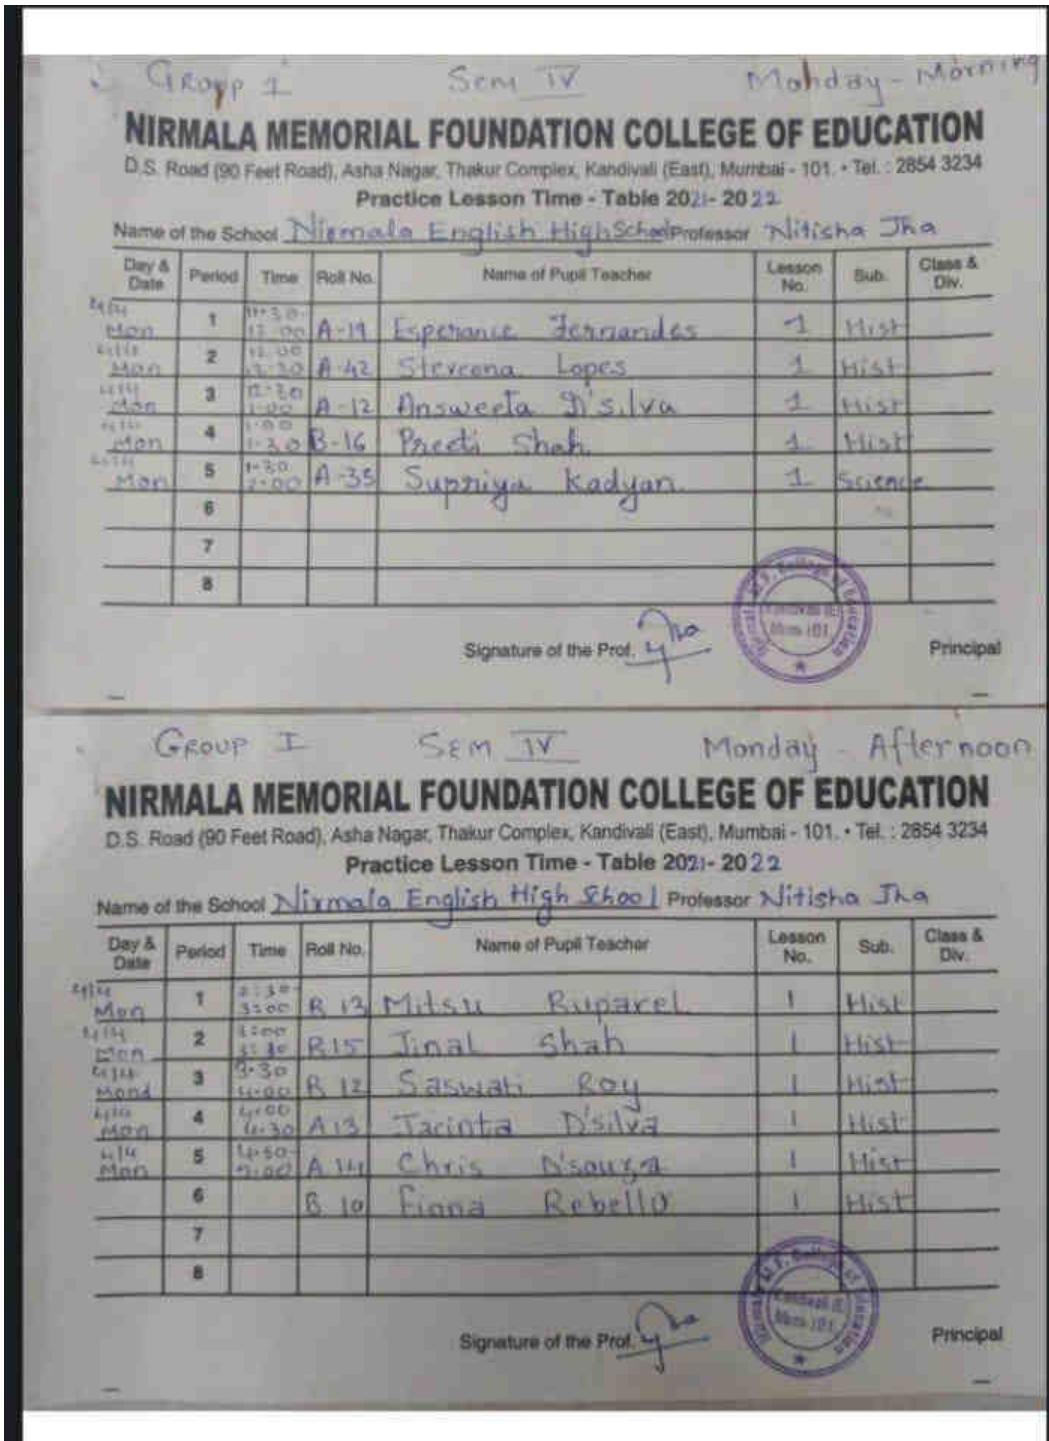 Group 1 Sem IV Monday - Morning
NIRMALA MEMORIAL FOUNDATION COLLEGE OF EDUCATION
D.S. Road (90 Feet Road), Asha Nagar, Thakur Complex, Kandivali (East), Mumbai - 101. • Tel. : 2854 3234
Practice Lesson Time - Table 2021- 2022
Name of the School Nirmala English High School Professor Nitisha Jha
Day & Date Period Time Roll No. Name of Pupil Teacher Lesson No. Sub. Class & Div.
4/4 Mon 1 11-30- 12-00 A-19 Esperance Fernandes 1 Hist
Mon 2 12-00 12-30 A-42 Steveena Lopes 1 Hist
4/4 Mon 3 12-30 1-00 A-12 Answeeta D'silva 1 Hist
Mon 4 1-00 1-30 B-16 Preeti Shah 1 Hist
Mon 5 1-30 2-00 A-35 Supriya Kadyan 1 Science
6
7
8
Signature of the Prof. Jha Principal
College of Education
Kandivali (E)
Mum-101
GROUP I SEM IV Monday - Afternoon
NIRMALA MEMORIAL FOUNDATION COLLEGE OF EDUCATION
D.S. Road (90 Feet Road), Asha Nagar, Thakur Complex, Kandivali (East), Mumbai - 101. • Tel. : 2854 3234
Practice Lesson Time - Table 2021- 2022
Name of the School Nirmala English High School Professor Nitisha Jha
Day & Date Period Time Roll No. Name of Pupil Teacher Lesson No. Sub. Class & Div.
4/4 Mon 1 2:30- 3:00 B 13 Mitsu Ruparel 1 Hist
4/4 Mon 2 3:00 3:30 B15 Jinal Shah 1 Hist
4/4 Mond 3 3-30 4-00 B 12 Saswati Roy 1 Hist
Mon 4 4-00 4-30 A13 Jacinta D'silva 1 Hist
4/4 Mon 5 4-30- 5-00 A 14 Chris D'souza 1 Hist
6 B 10 Fiona Rebello 1 Hist
7
8
Signature of the Prof. Jha Principal
College of Education
Kandivali (E)
Mum-101